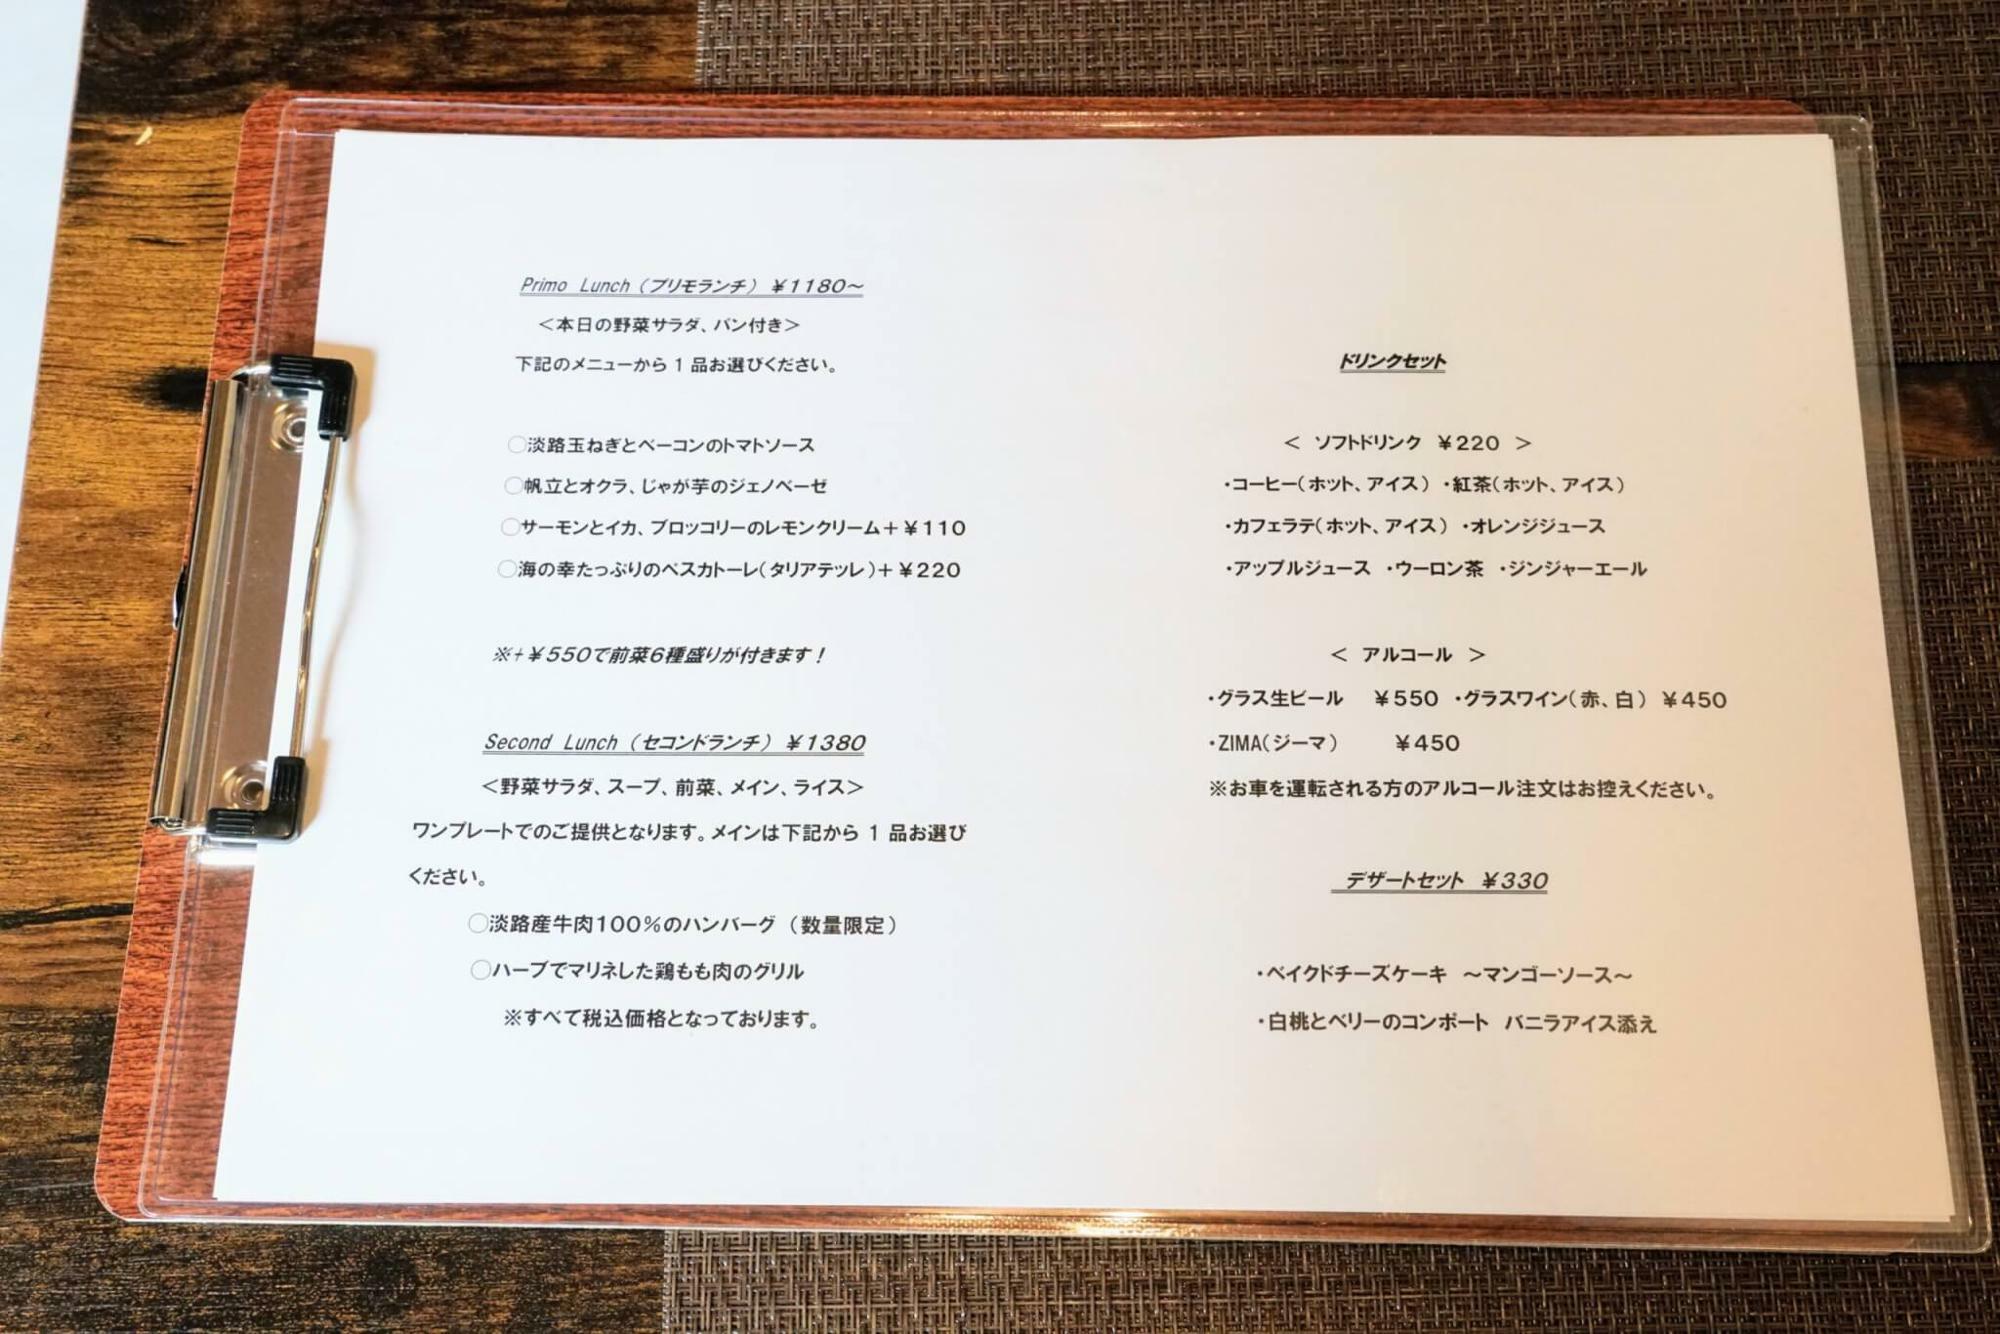 Primo Lunch（プリモランチ）￥1180～
＜本日の野菜サラダ、パン付き＞
下記のメニューから 1 品お選びください。
○淡路玉ねぎとベーコンのトマトソース
○帆立とオクラ、じゃが芋のジェノベーゼ
○サーモンとイカ、ブロッコリーのレモンクリーム＋￥110
○海の幸たっぷりのペスカトーレ（タリアテッレ）＋￥220
※+￥550で前菜6種盛りが付きます！
Second Lunch（セコンドランチ）￥1380
＜野菜サラダ、スープ、前菜、メイン、ライス＞
ワンプレートでのご提供となります。メインは下記から 1 品お選び
ください。
○淡路産牛肉100％のハンバーグ（数量限定）
○ハーブでマリネした鶏もも肉のグリル
※すべて税込価格となっております。
ドリンクセット
＜ ソフトドリンク ￥220 ＞
・コーヒー（ホット、アイス）・紅茶（ホット、アイス）
・カフェラテ（ホット、アイス）・オレンジジュース
・アップルジュース ・ウーロン茶 ・ジンジャーエール
＜ アルコール ＞
・グラス生ビール ￥550 ・グラスワイン（赤、白）￥450
・ZIMA（ジーマ） ￥450
※お車を運転される方のアルコール注文はお控えください。
デザートセット ￥330
・ベイクドチーズケーキ ～マンゴーソース～
・白桃とベリーのコンポート バニラアイス添え